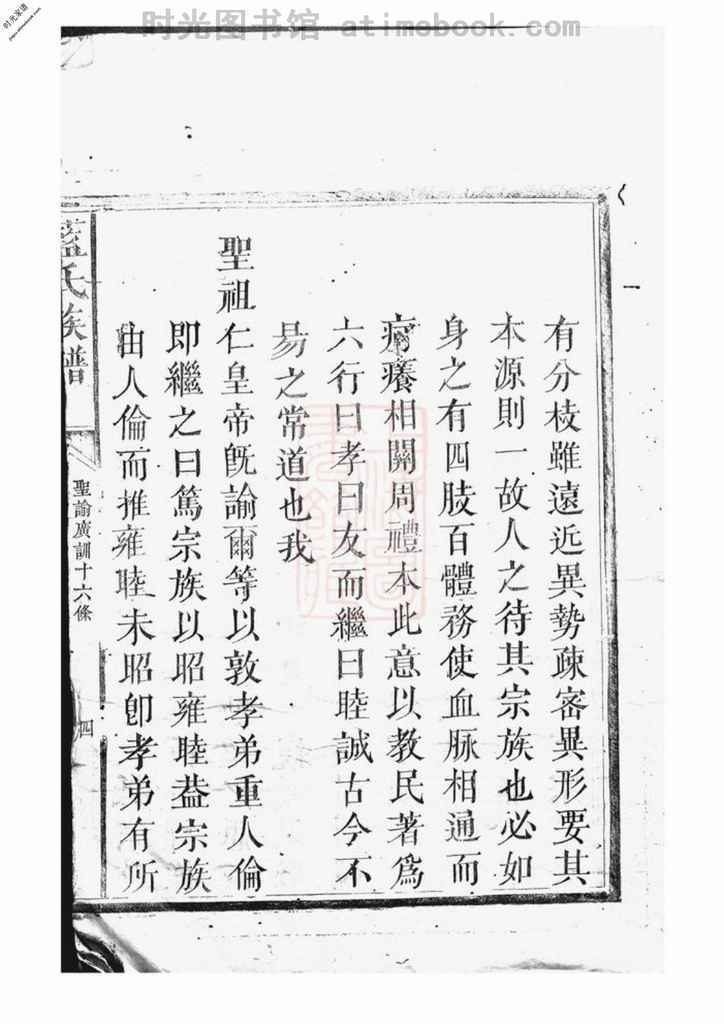 时光图书馆 atimebook.com
时光家谱
有分枝雖遠近異勢疎審異形要其
本源則一故人之待其宗族也必如
身之有四肢百體務使血脉相通而
疴癢相關周禮本此意以教民著爲
六行曰孝曰友而繼曰睦誠古今不
易之常道也我
聖祖仁皇帝旣諭爾等以敦孝弟重人倫
即繼之曰篤宗族以昭雍睦葢宗族
由人倫而推雍睦未昭卽孝弟有所
藍氏族譜
聖諭廣訓十六條
四